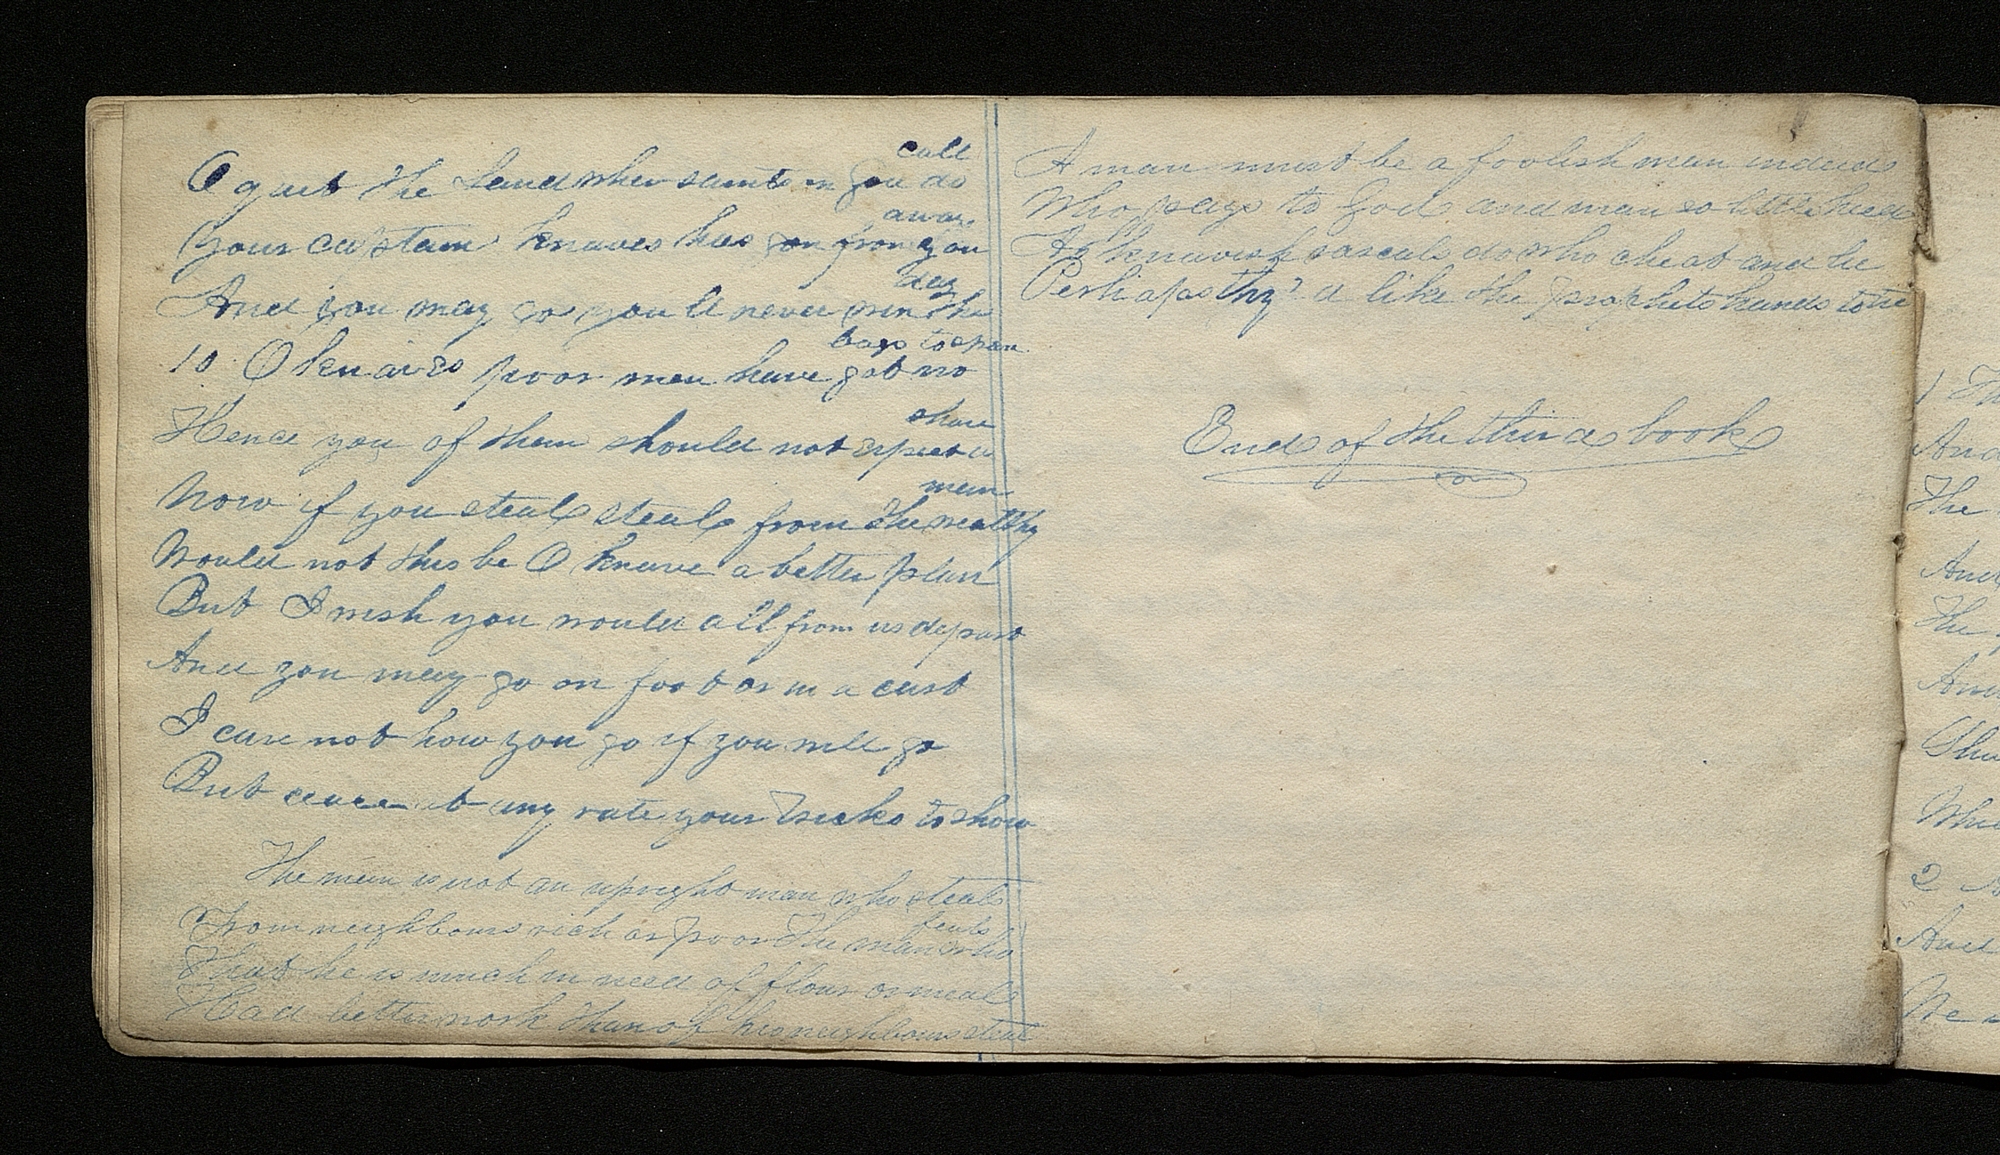 O quit the land when saints on you do call
Your captain knaves has gon from you away
And you may go you ll never win the day
10 O knaves poor men have got no bags to spare
Hence you of them should not expect a share
Now if you steal steal from the wealthy men
Would not this be O knave a better plan
But I wish you would all from us depart
And you may go on foot or in a cart
I care not how you go if you will go
But cease at any rate your tricks to show
The man is not an upright man who steals
From neighbours rich or poor The man who feels
That he is much in need of flour or meal
Had better work than of his neighbours steal
A man must be a foolish man indeed
Who pays to God and man so little heed
As knavish rascals do who cheat and lie
Perhaps they'd like the prophets hands to tie
End of the third book
1 Th
And
The
And
The
And
Sha
Whi
2
And
We